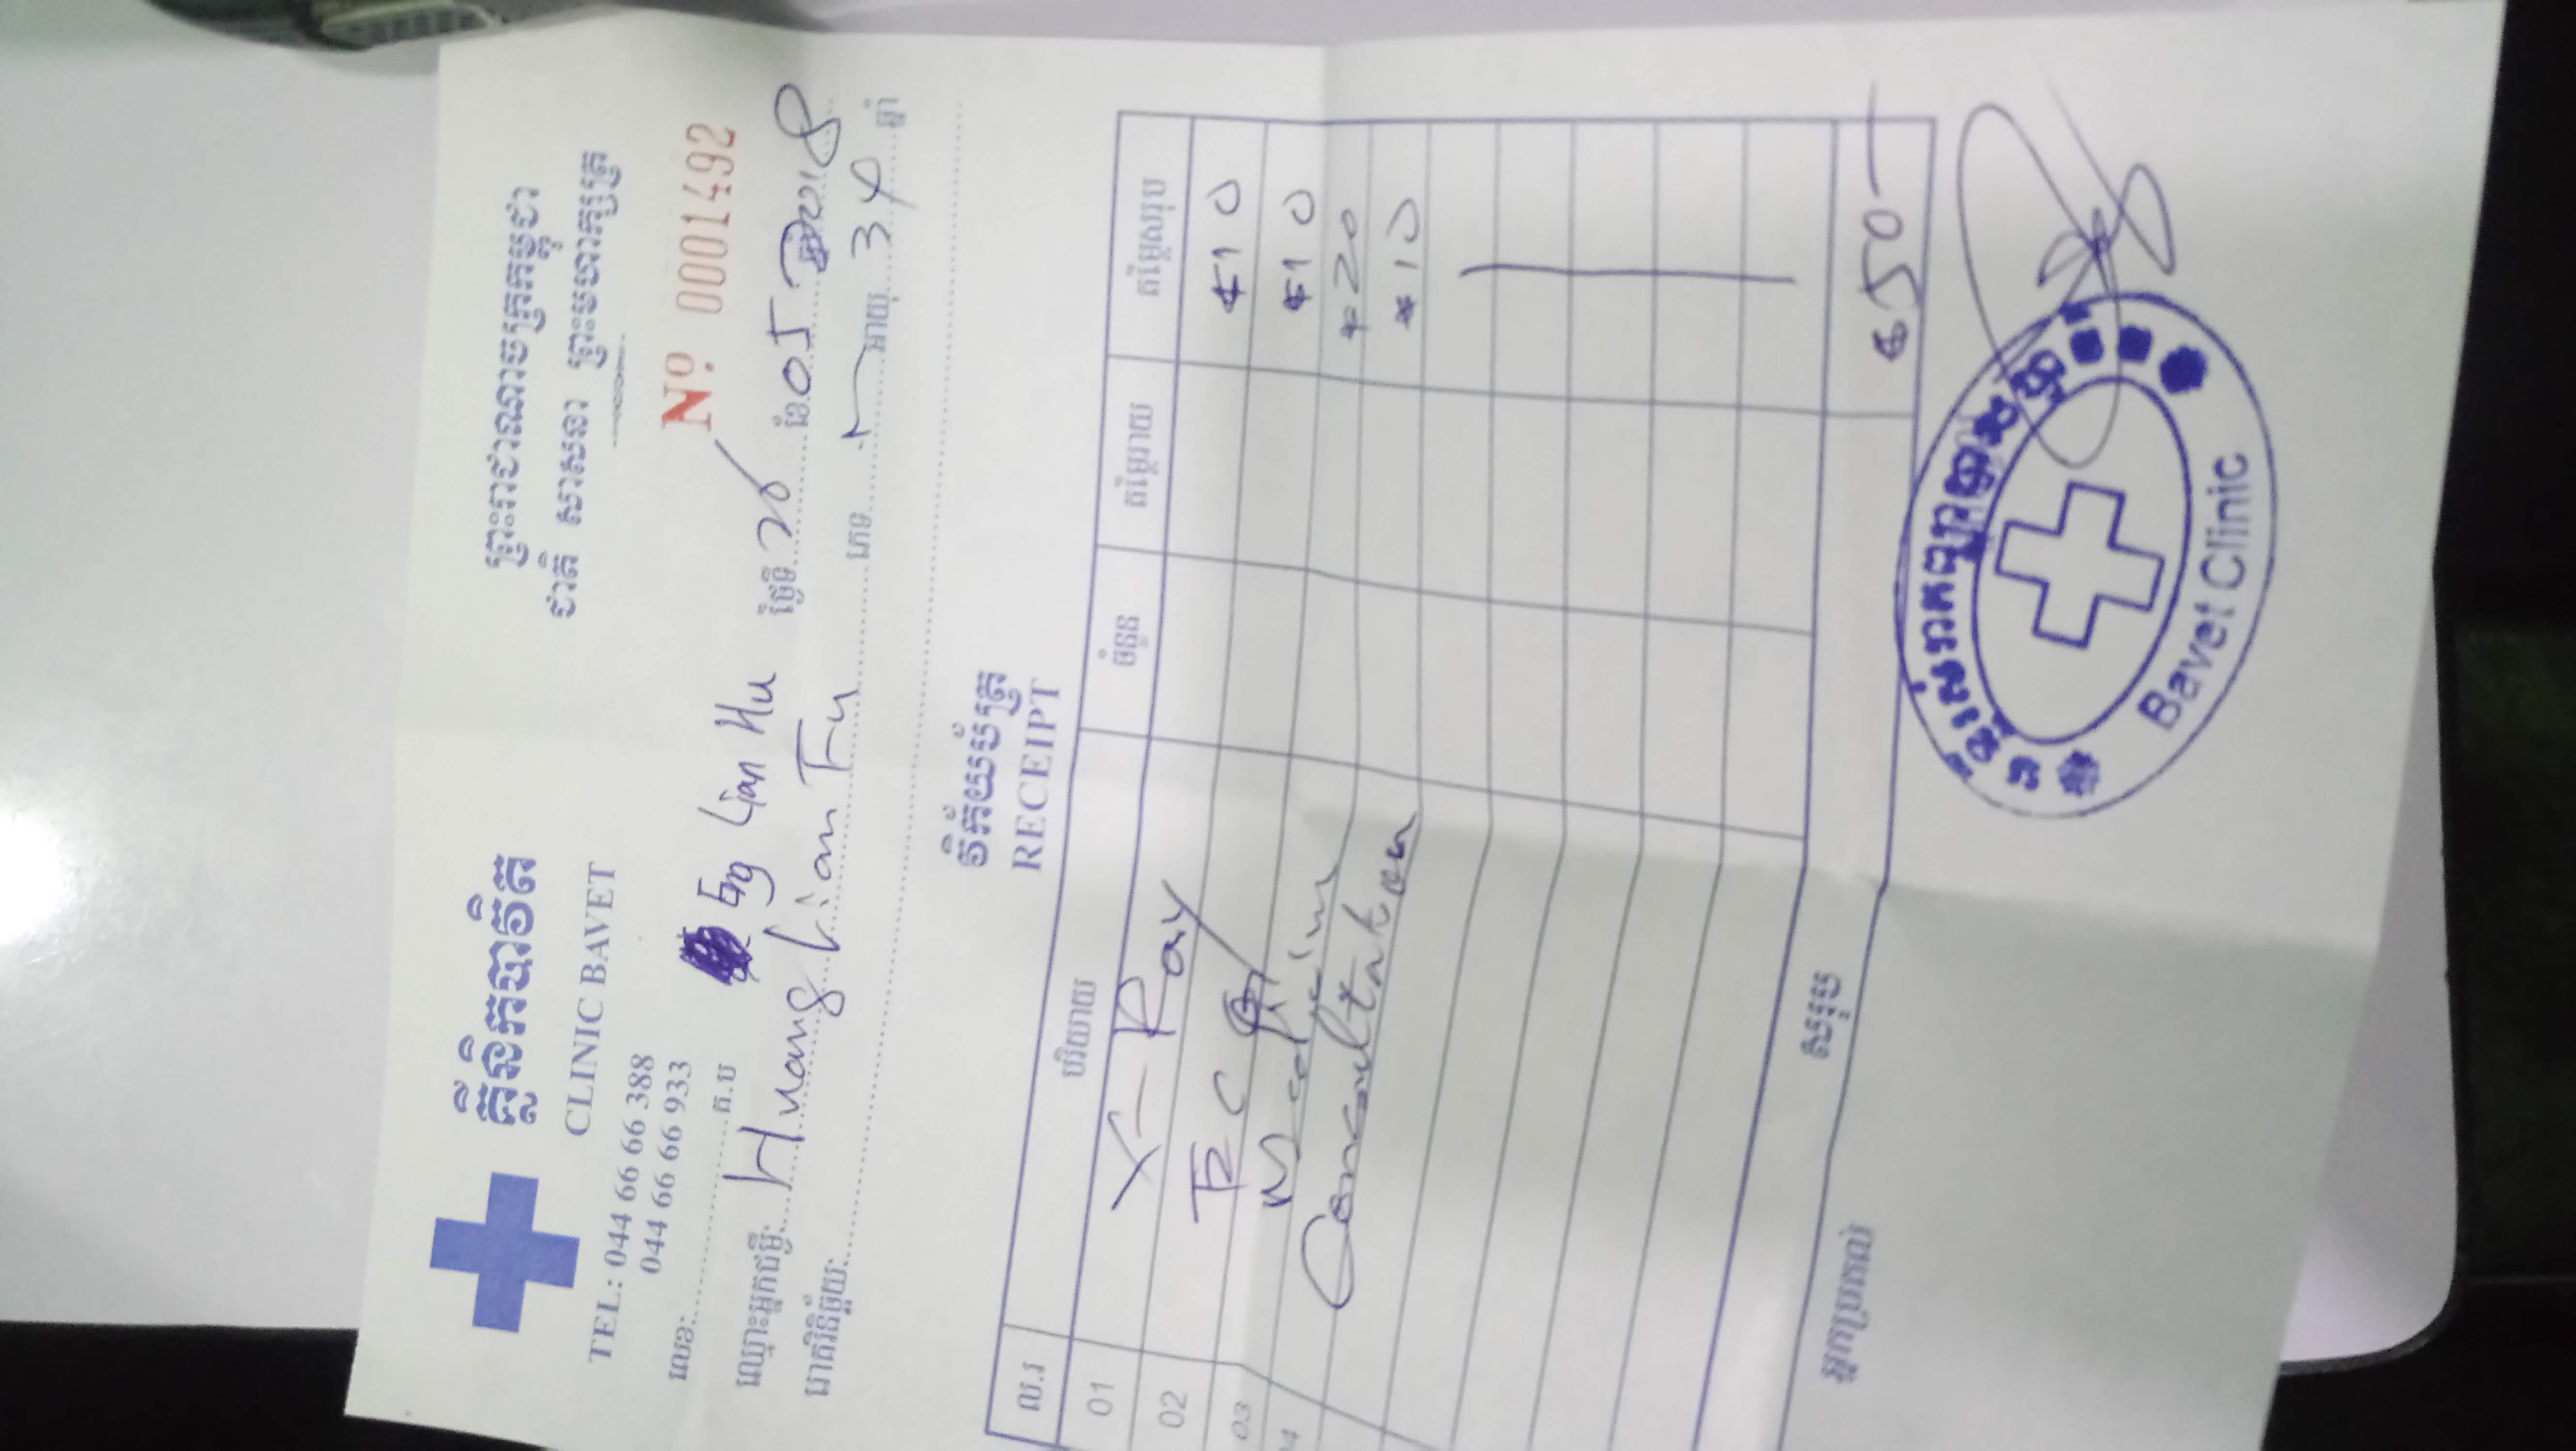 គ្លីនិកបាវិត
CLINIC BAVET
TEL: 044 66 66 388
044 66 66 933
ព្រះរាជាណាចក្រកម្ពុជា
ជាតិ សាសនា ព្រះមហាក្សត្រ
Nº 0001492
លេខ: គ.ប
Eng Lian Hu
ឈ្មោះអ្នកជម្ងឺ: Huang Lian Fu
ថ្ងៃទី 26 ខែ 05 2018
ភេទ អាយុ 34 ឆ្នាំ
រោគវិនិច្ឆ័យ:
វិក័យប័ត្រ
RECEIPT
ល.រ បរិយាយ ចំនួន តម្លៃរាយ តម្លៃសរុប
01 X-Ray $10
02 ECG $10
03 Medicine $20
04 Consultation $10
សរុប $50
អ្នកប្រគល់
Bavet Clinic